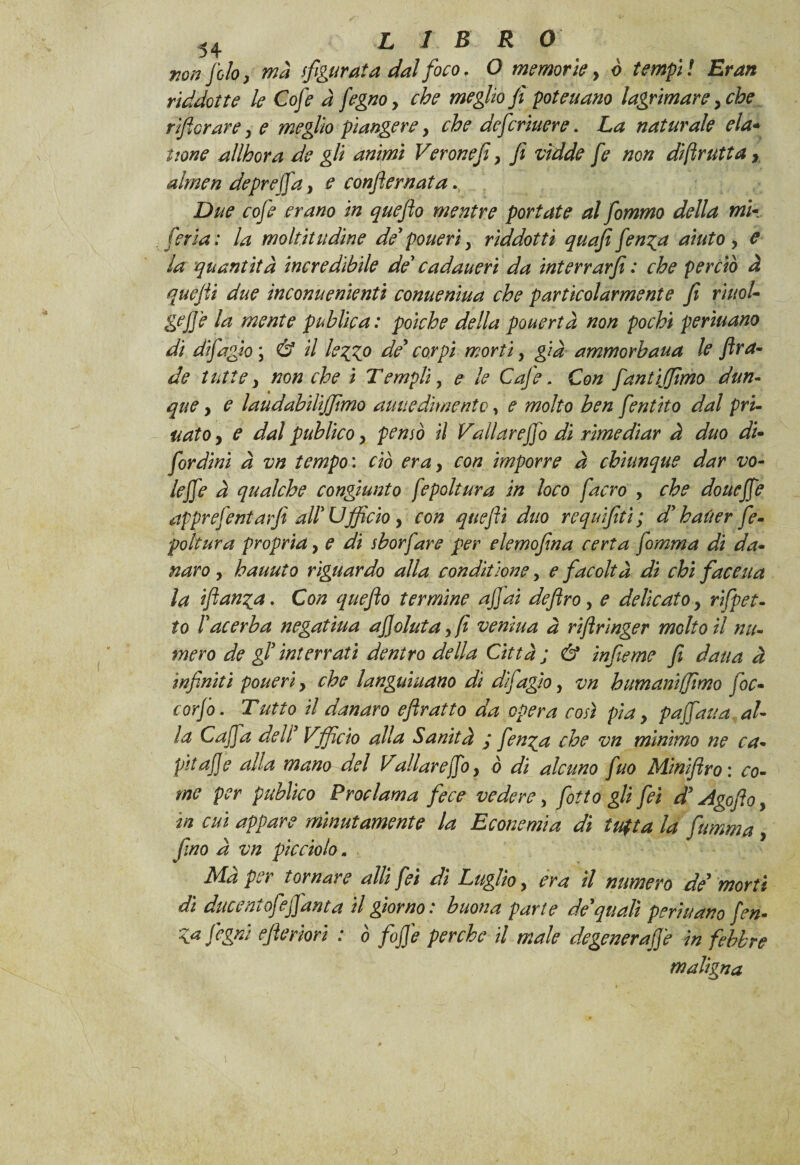 54 LIBRO
non ſolo, mà sfigurata dal foco. O memorie, ò tempi! Eran
riddotte le Coſe à ſegno, che meglio ſi poteuano lagrimare, che
riſtorare, e meglio piangere, che deſcriuere. La naturale ela-
tione allhora de gli animi Veroneſi, ſi vidde ſe non diſtrutta,
almen depreſſa, e conſternata.
Due coſe erano in queſto mentre portate al ſommo della mi-
ſeria: la moltitudine de' poueri, riddotti quaſi ſenza aiuto, e
la quantità incredibile de' cadaueri da interrarſi: che perciò à
queſti due inconuenienti conueniua che particolarmente ſi riuol-
geſſe la mente publica: poiche della pouertà non pochi periuano
di diſagio; & il lezzo de' corpi morti, già ammorbaua le ſtra-
de tutte, non che i Templi, e le Caſe. Con ſantiſſimo dun-
que, e laudabiliſſimo auuedimento, e molto ben ſentito dal pri-
uato, e dal publico, pensò il Vallareſſo di rimediar à duo di-
ſordini à vn tempo: ciò era, con imporre à chiunque dar vo-
leſſe à qualche congiunto ſepoltura in loco ſacro, che doueſſe
appreſentarſi all' Ufficio, con queſti duo requiſiti; d' hauer ſe-
poltura propria, e di sborſare per elemoſina certa ſomma di da-
naro, hauuto riguardo alla conditione, e facoltà di chi faceua
la iſtanza. Con queſto termine aſſai deſtro, e delicato, riſpet-
to l'acerba negatiua aſſoluta, ſi veniua à riſtringer molto il nu-
mero de gl' interrati dentro della Città; & inſieme ſi daua à
infiniti poueri, che languiuano di diſagio, vn humaniſſimo ſoc-
corſo. Tutto il danaro eſtratto da opera così pia, paſſaua al-
la Caſſa dell' Vfficio alla Sanità; ſenza che vn minimo ne ca-
pitaſſe alla mano del Vallareſſo, ò di alcuno ſuo Miniſtro: co-
me per publico Proclama fece vedere, ſotto gli ſei d' Agoſto,
in cui appare minutamente la Economia di tutta la ſumma,
ſino à vn picciolo.
Mà per tornare alli ſei di Luglio, era il numero de' morti
di ducentoſeſſanta il giorno: buona parte de' quali periuano ſen-
za ſegni eſteriori: ò foſſe perche il male degeneraſſe in febbre
maligna